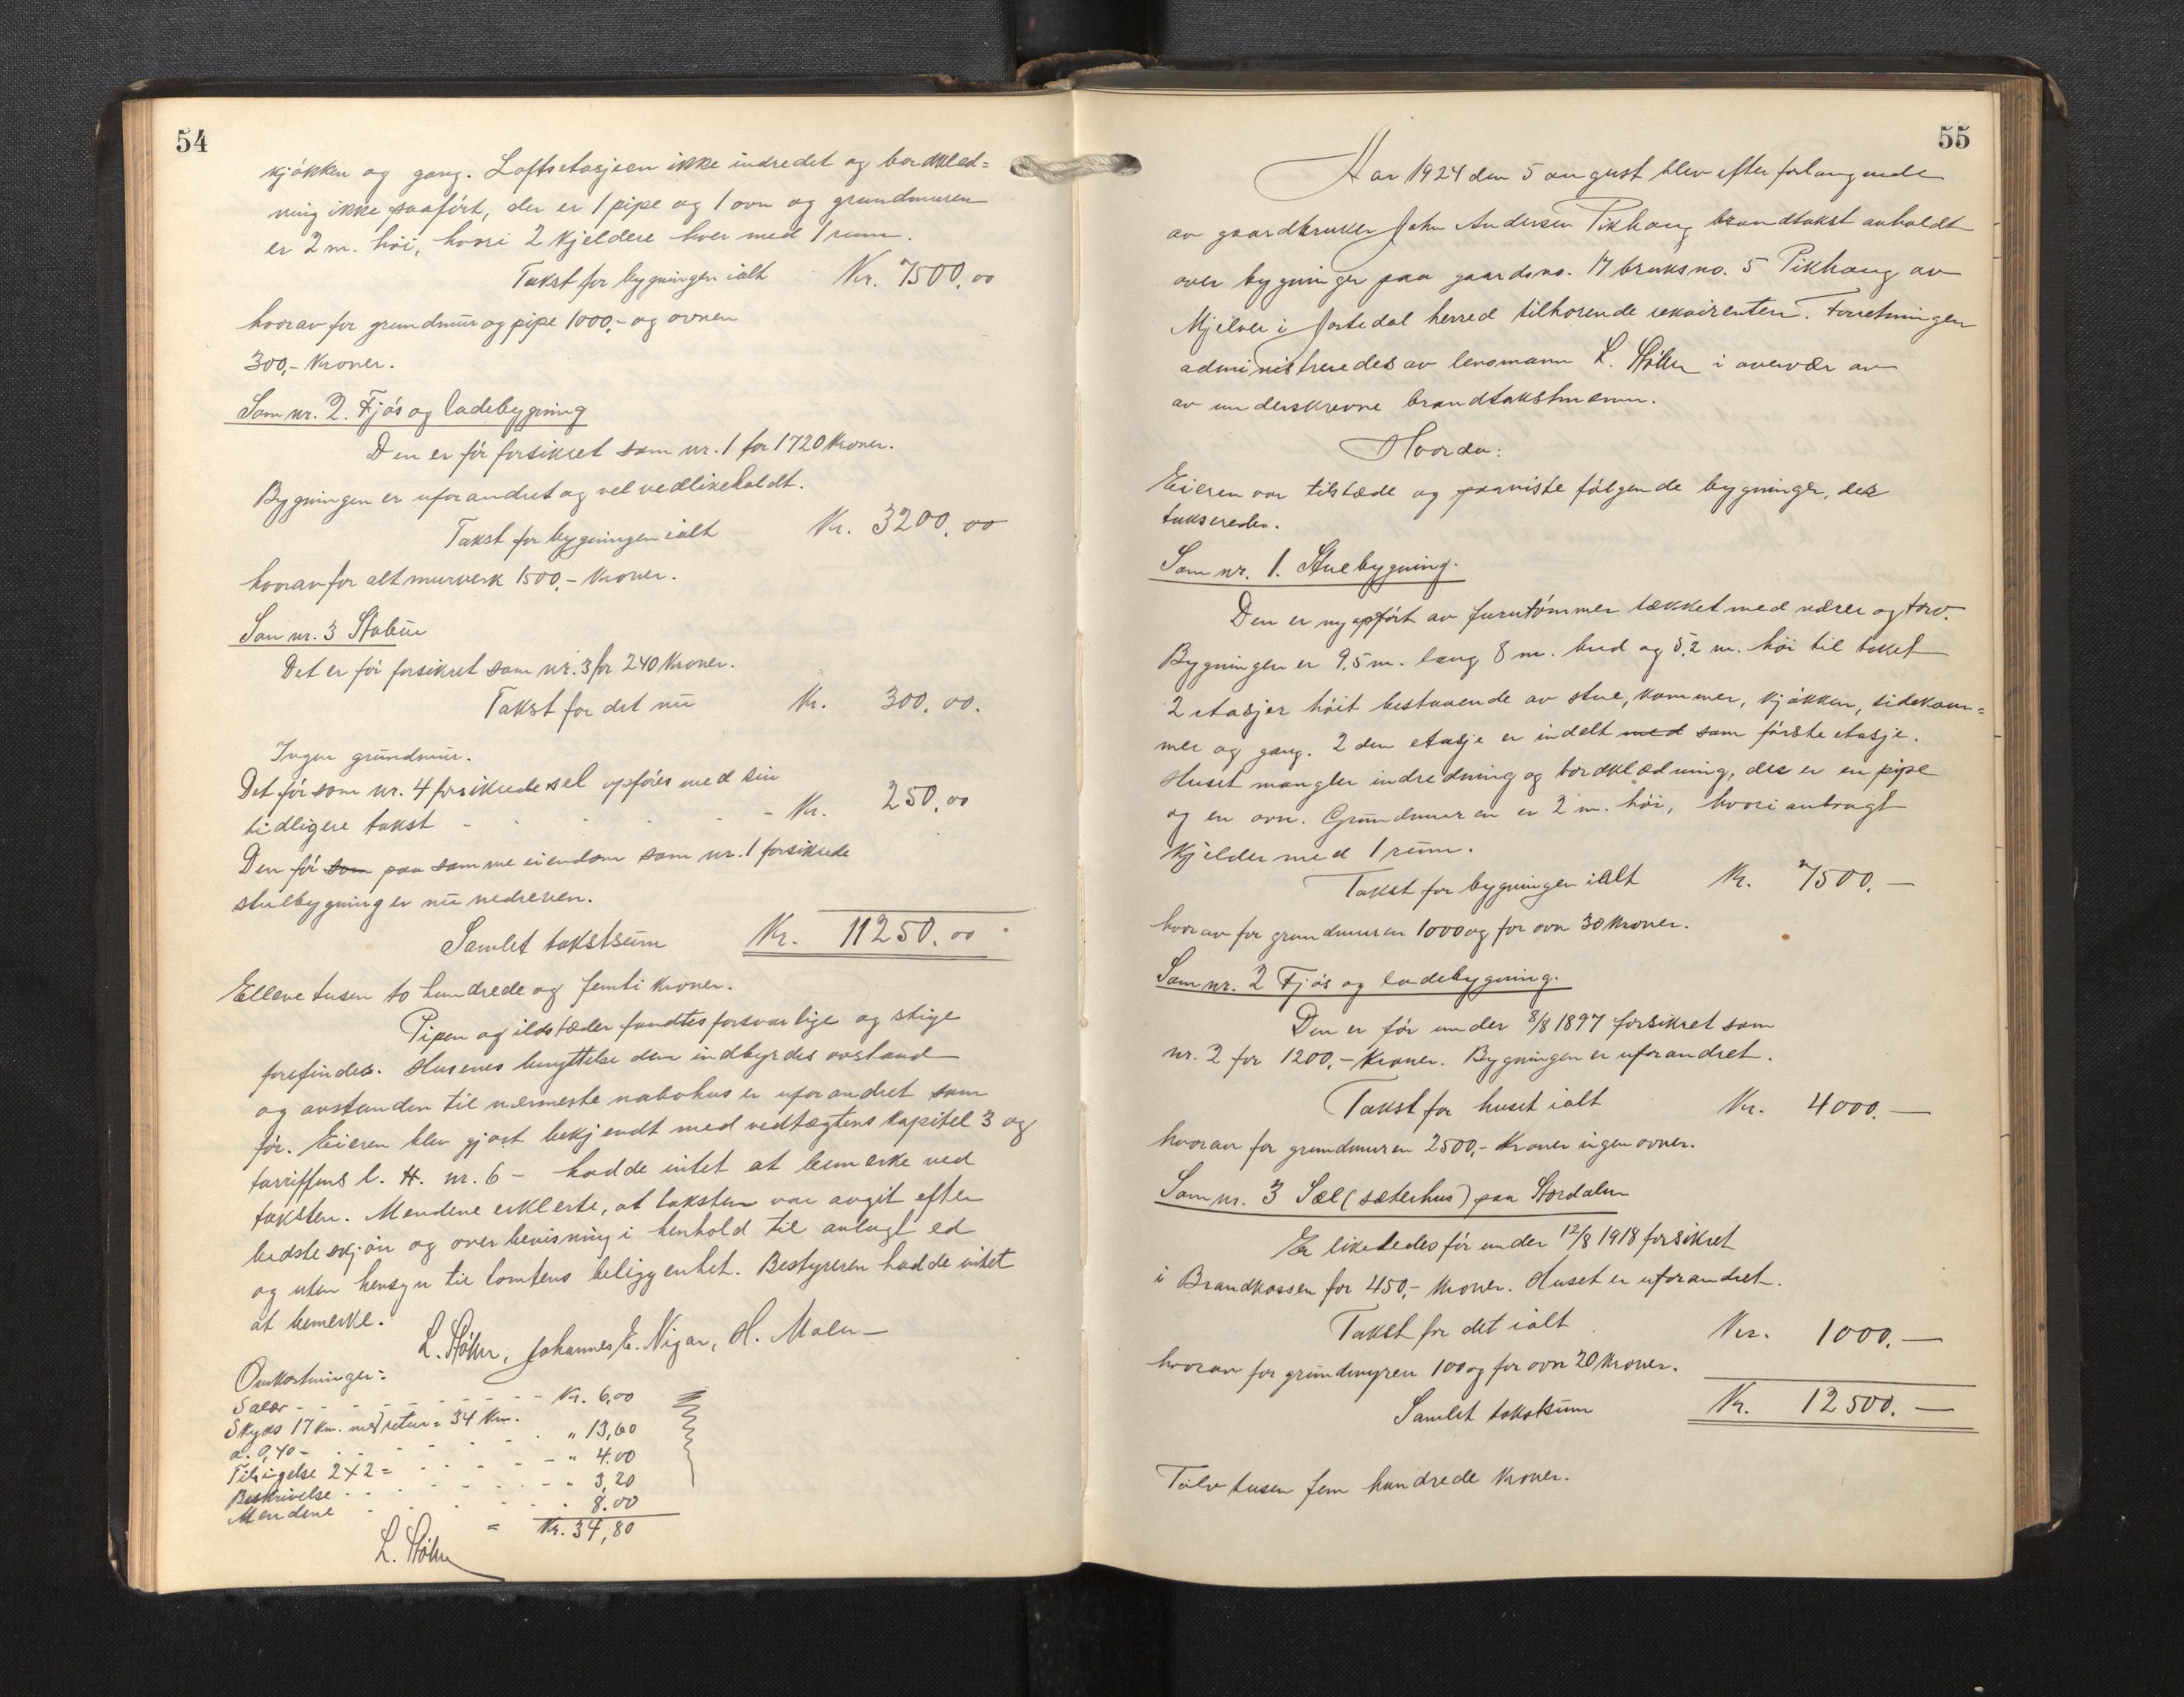 54
kjøkken og gang. Loftsetasjeen ikke indredet og bordklæd=
ning ikke paaført, der er 1 pipe og 1 ovn og grundmuren
er 2 m. høi, hvori 2 kjeldere hver med 1 rum.
Takst for bygningen ialt Kr. 7500,00
hvorav for grundmur og pipe 1000,- og ovnen
300,- kroner.
Som nr. 2. Fjøs og ladebygning
Den er før forsikret som nr. 1 for 1720 kroner.
Bygningen er uforandret og vel vedlikeholdt.
Takst for bygningen ialt Kr. 3200,00
hvorav for alt murverk 1500,- kroner.
Som nr. 3 Stabur
Det er før forsikret som nr. 3 for 240 kroner.
Takst for det nu Kr. 300,00.
Ingen grundmur.
Det før som nr. 4 forsikrede sel opføres med sin
tidligere takst - - - - Kr. 250,00
Den før som paa samme eiendom som nr. 1 forsikrede
stuebygning er nu nedreven.
Samlet takstsum Kr. 11250,00
Elleve tusen to hundrede og femti kroner.
Pipen og ildstæder fandtes forsvarlige og stige
forefindes. Husenes benyttelse den indbyrdes avstand
og avstanden til nærmeste nabohus er uforandret som
før. Eieren blev gjort bekjendt med vedtægtens kapitel 3 og
tariffens l. H. nr. 6 - hadde intet at bemerke ved
taksten. Mendene erklerte, at taksten var avgit efter
bedste skjøn og overbevisning i henhold til avlagt ed
og uten hensyn til tomtens beliggenhet. Bestyreren hadde intet
at bemerke.
L. Støhr, Johannes E. Nigar, H. Maler
Omkostninger:
Salær - - - - - Kr. 6,00
Skyds 17 km. med retur = 34 km.
a. 0,40 - - - - " 13,60
Tilsigelse 2 x 2 = - - - " 4.00
Beskrivelse - - - - " 3,20
Mendene - - - - 8.00
= Kr. 34,80
L. Støhr
55
Aar 1924 den 5 august blev efter forlangende
av gaardbruker John Andersen Pikhaug brandtakst avholdt
over bygninger paa gaardsno. 17 bruksno. 5 Pikhaug av
Mjelver i Jostedal herred tilhørende rekvirenten. Forretningen
administreredes av lensmann L. Støhr i overvær av
av underskrevne brandtakstmenn.
Hvorda:
Eieren var tilstæde og paaviste følgende bygninger, der
takseredes.
Som nr. 1. Stuebygning.
Den er nyopført av furutømmer tækket med næver og torv.
Bygningen er 9,5 m. lang 8 m. bred og 5,2 m. høi til taket
2 etasjer høit bestaaende av stue, kammer, kjøkken, sidekam=
mer og gang. 2 den etasje er indelt med som første etasje.
Huset mangler indredning og bordklædning, der er en pipe
og en ovn. Grundmuren er 2 m. høi, hvori anbragt
kjelder med 1 rum.
Takst for bygningen ialt Kr. 7500.-
hvorav for grundmuren 1000 og for ovn 30 kroner.
Som nr. 2 Fjøs og ladebygning.
Den er før under 8/8 1897 forsikret som
nr. 2 for 1200,- kroner. Bygningen er uforandret.
Takst for huset ialt Kr. 4000.-
hvorav for grundmuren 2500,- kroner ingen ovner.
Som nr. 3 Sæl (sæterhus) paa Stordalen
Er likeledes før under 12/8 1918 forsikret
i Brandkassen for 450,- kroner. Huset er uforandret.
Takst for det ialt Kr. 1000.-
hvorav for grundmyren 100 og for ovn 20 kroner.
Samlet takstsum Kr. 12500.-
Tolv tusen fem hundrede kroner.